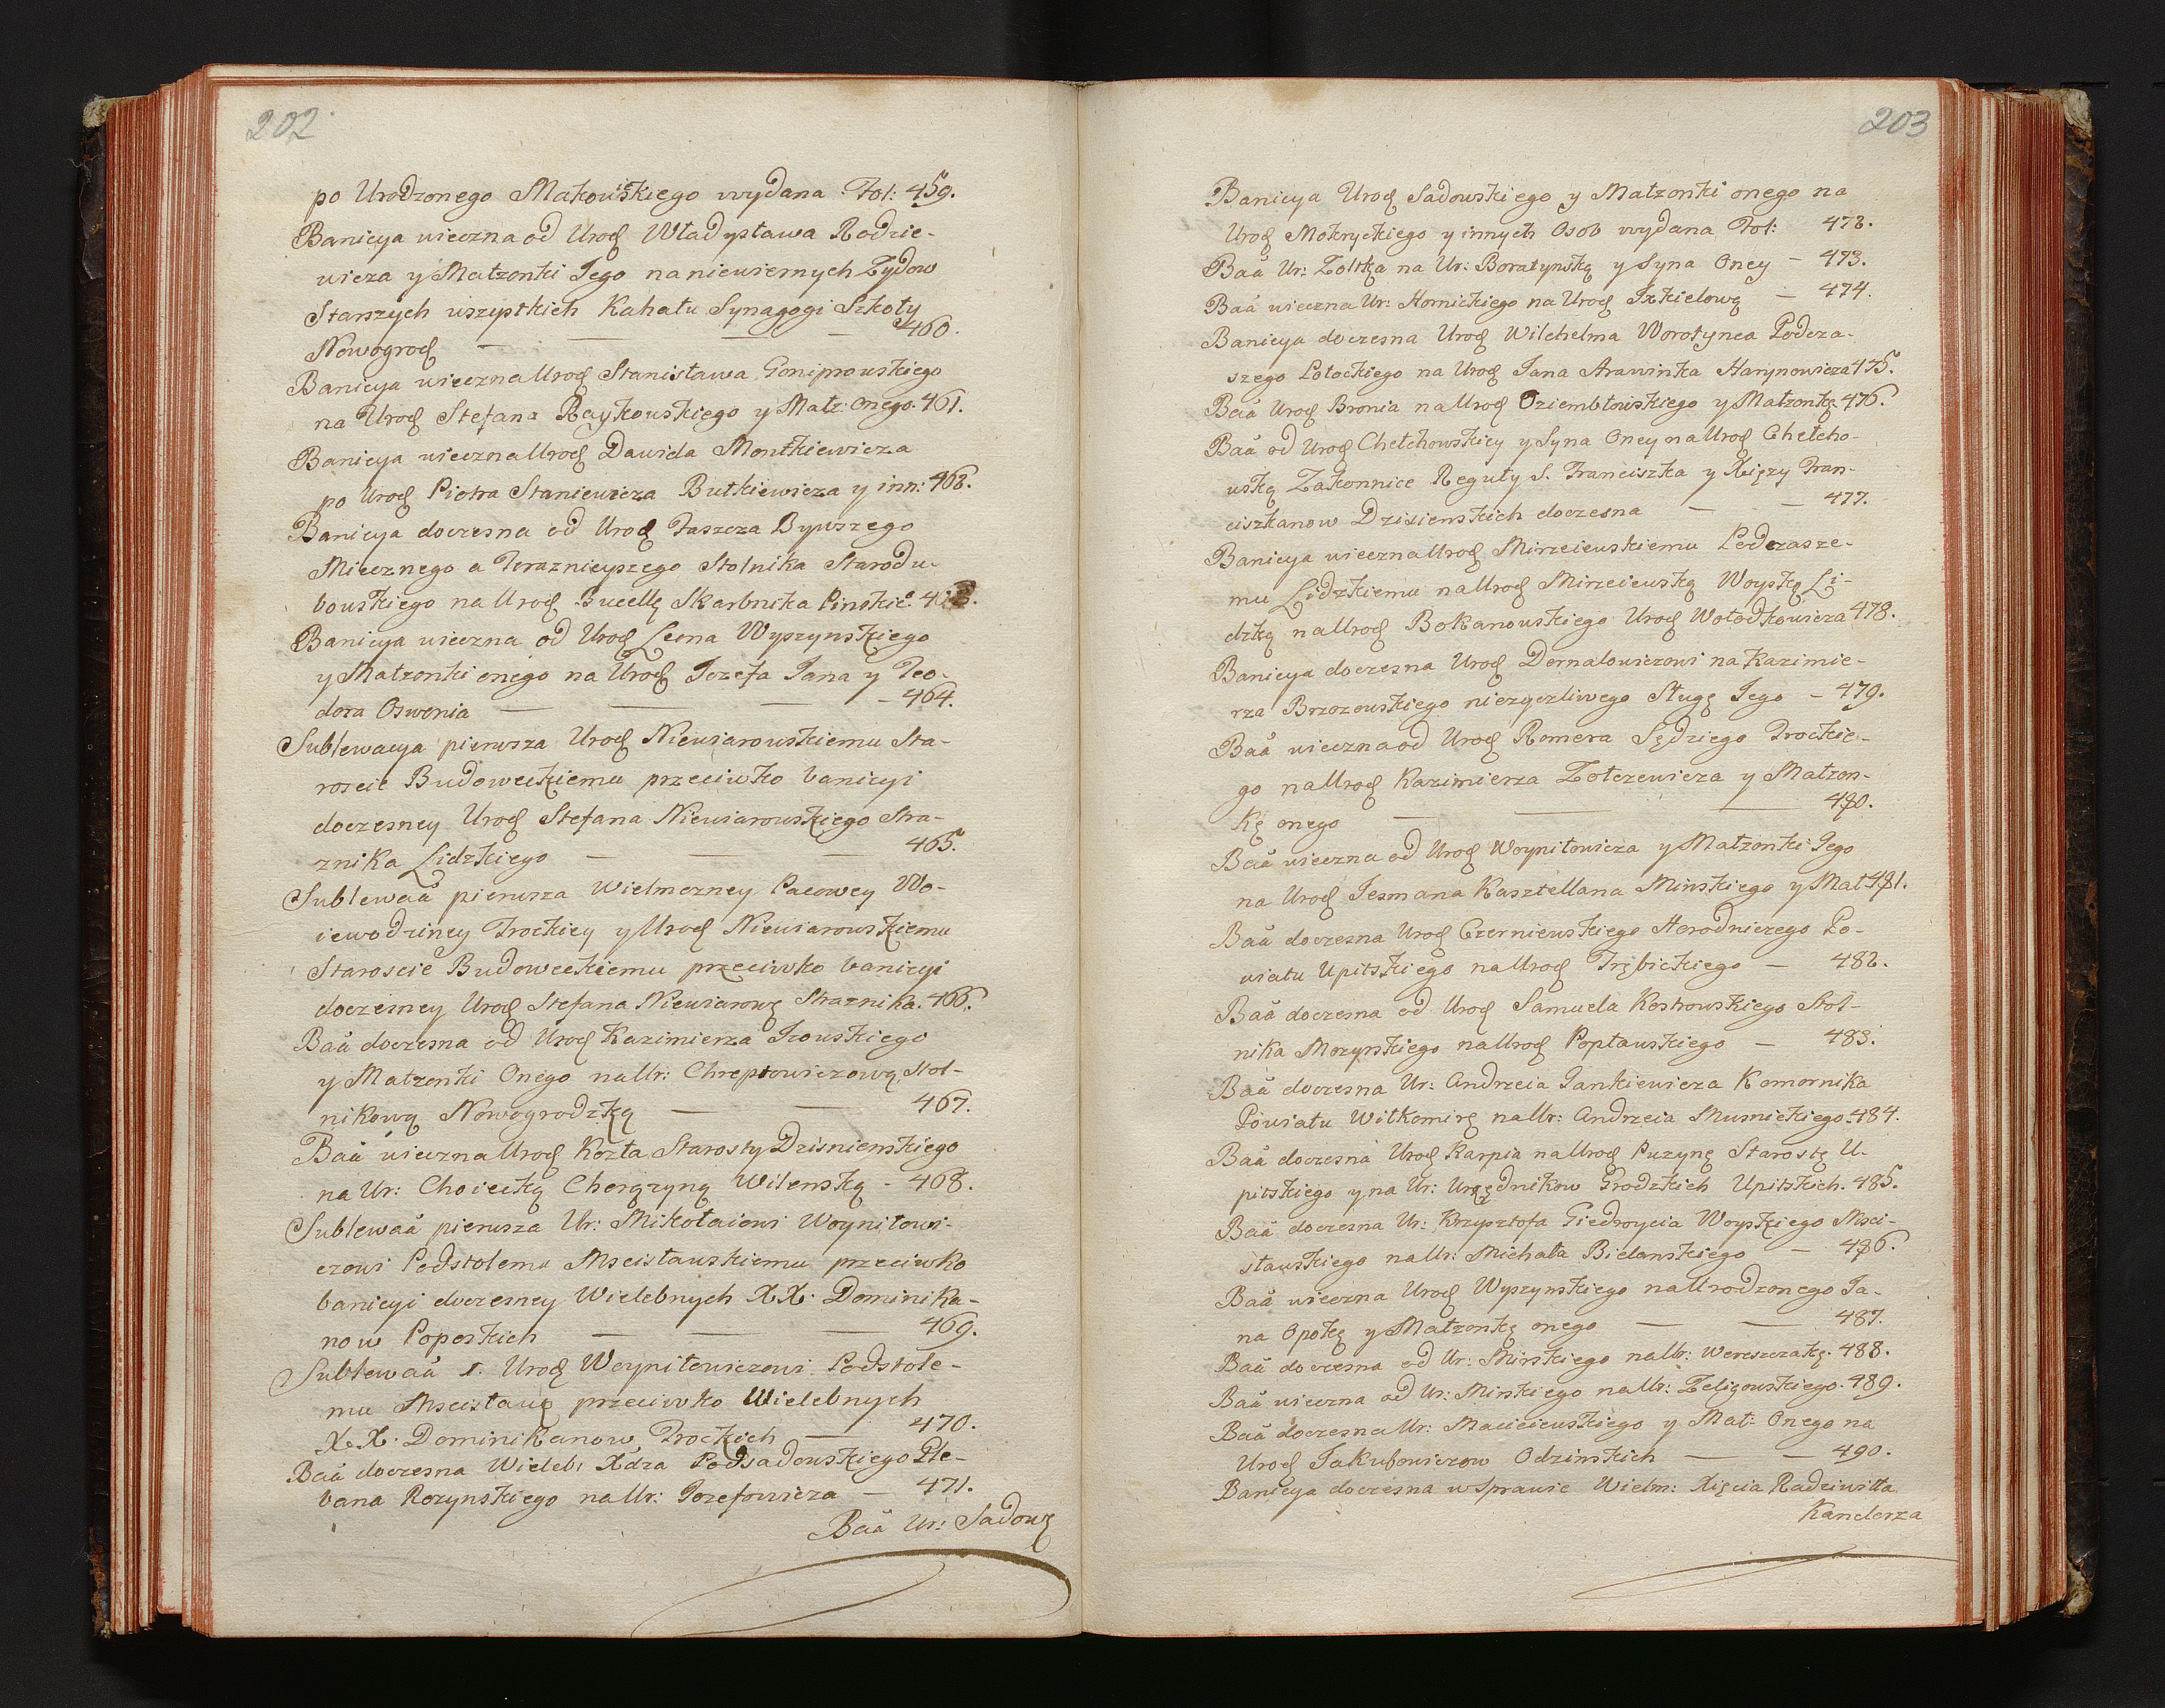 202
po Urodzonego Makowskiego wydana Fol: 459.
Banicya wieczna od Urod Władysława Rodzie-
wicza y Małżonki Jego na niewiernych Żydow
Starszych wszystkich Kahału Synagogi Szkoły
Nowogrod — — — — 460.
Banicya wieczna Urod Stanisława Goniprowskiego
na Urod Stefana Raykowskiego y Małż: Onego. 461.
Banicya wieczna Urod Dawida Montkiewicza
po Urod Piotra Staniewicza Butkiewicza y inn: 462.
Banicya doczesna od Urod Faszcza Bywszego
Miecznego a Teraznieyszego Stolnika Starodu-
bowskiego na Urod Bucellę Skarbnika Pinskie
Banicya wieczna od Urod Leona Wyszynskiego
y Małżonki onego na Urod Jozefa Jana y Teo-
dora Oswenia — — — — 464.
Sublewacya pierwsza Urod Niewiarowskiemu Sta-
roscie Budoweckiemu przeciwko banicyi
doczesney Urod Stefana Niewiarowskiego Stra-
znika Lidzkiego — — — 465.
Sublewaa pierwsza Wielmozney Pacowey Wo-
iewodziney Trockiey y Urod Niewiarowskiemu
Staroscie Budoweckiemu przeciwko banicyi
doczesney Urod Stefana Niewiarowᶎ Straznika. 466.
Baa doczesna od Urod Kazimierza Ikowskiego
y Małżonki Onego na Ur: Chreptowiczową Stol-
nikową Nowogrodzką — — 467.
Baa wieczna Urod Kozła Starosty Dzisnienskiego
na Ur: Choiecką Chorążyną Wilenską - 468.
Sublewaa pierwsza Ur: Mikołaiowi Woyniłowi-
czowi Podstolemu Mscisławskiemu przeciwko
banicyi doczesney Wielebnych XX. Dominika-
now Poporskich — — — 469.
Sublewaa 1. Urod Woyniłowiczowi Podstole-
mu Mscisławᶎ przeciwko Wielebnych
XX. Dominikanow Trockich — 470.
Baa doczesna Wieleb: Xdza Podsadowskiego Ple-
bana Rozynskiego na Ur: Jozefowicza — 471.
Baa Ur: Sadowᶎ
203
Banicya Urod Sadowskiego y Małżonki onego na
Urod Mokryckiego y innych Osob wydana Fol: 472.
Baa Ur: Zoltka na Ur: Boratynską y Syna Oney — 473.
Baa wieczna Ur: Hornickiego na Urod Jzkielową — 474.
Banicya doczesna Urod Wilchelma Worotynca Podcza-
szego Połockiego na Urod Jana Arawinka Harynowicza 475.
Baa Urod Bronia na Urod Dziembłowskiego y Małżonkę 476.
Baa od Urod Chełchowskiey y Syna Oney na Urod Chełcho-
wską Zakonnice Reguły S. Franciszka y Xięzy Fran-
ciszkanow Dzisienskich doczesna — — 477.
Banicya wieczna Urod Mirzeiewskiemu Podczasze-
mu Lidzkiemu na Urod Mirzeiewską Woyską Li-
dzką na Urod Bokanowskiego Urod Wołodkowicza 478.
Banicya doczesna Urod Dernalowiczowi na Kazimie-
rza Brzozowskiego nieżyczliwego Sługę Jego — 479.
Baa wieczna od Urod Romera Sędziego Trockie-
go na Urod Kazimierza Zołczewicza y Małżon-
kę onego — — 480.
Baa wieczna od Urod Woyniłowicza y Małżonki Jego
na Urod Jesmana Kasztellana Minskiego y Mał 481.
Baa doczesna Urod Czerniewskiego Horodniczego Po-
wiatu Upitskiego na Urod Trębickiego — 482.
Baa doczesna od Urod Samuela Kostrowskiego Stol-
nika Mozyrskiego na Urod Popławskiego — 483.
Baa doczesna Ur: Andrzeia Jankiewicza Komornika
Powiatu Wiłkomirᶎ na Ur: Andrzeia Musnickiego. 484.
Baa doczesna Urod Karpia na Urod Puzynę Starostę U-
pitskiego y na Ur: Urzędnikow Grodzkich Upitskich. 485.
Baa doczesna Ur: Krzysztofa Giedroycia Woyskiego Msci-
sławskiego na Ur: Michała Bielanskiego — 486.
Baa wieczna Urod Wyszynskiego na Urodzonego Ja-
na Opokę y Małżonkę onego — — 487.
Baa doczesna od Ur: Mirskiego na Ur: Wereszczakę. 488.
Baa wieczna od Ur: Mirskiego na Ur: Zeligowskiego. 489.
Baa doczesna Ur: Macieiewskiego y Mał: Onego na
Urod Jakubowiczow Odzinskich — — 490.
Banicya doczesna w Sprawie Wielm: Xięcia Radziwiłła
Kanclerza